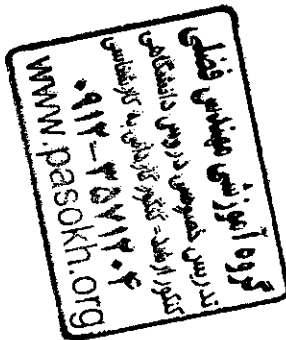 گروه آموزشی مهندس فضلی
تدریس خصوصی دروس دانشگاهی
کنکور ارشد - کنکور کاردانی به کارشناسی
۰۹۱۲-۳۵۷۷۱۲۰۴
www.pasokh.org